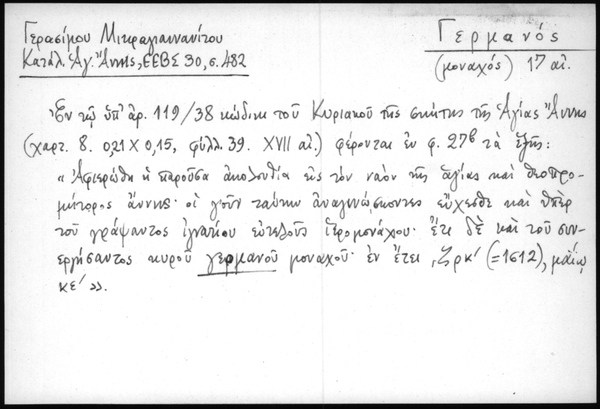 Γερασίμου Μικραγιαννανίτου
Κατάλ. Ἁγ. Ἄννης, ΕΕΒΣ 30, σ. 482
Γερμανός
(μοναχός) 17 αἰ.
Ἐν τῷ ὑπ' ἀρ. 119/38 κώδικι τοῦ Κυριακοῦ τῆς σκήτης τῆς Ἁγίας Ἄννης
(χαρτ. 8. 0,21 Χ 0,15, φύλλ. 39. XVII αἰ.) φέρονται ἐν φ. 27β τὰ ἑξῆς:
« Ἀφιερώθη ἡ παροῦσα ἀκολουθία εἰς τὸν ναὸν τῆς ἁγίας καὶ θεοπρο-
μήτορος ἄννης· οἱ γοῦν ταύτην ἀναγινώσκοντες εὔχεσθε καὶ ὑπὲρ
τοῦ γράψαντος ἰγνατίου εὐτελοῦς ἱερομονάχου· ἔτι δὲ καὶ τοῦ συν-
εργήσαντος κυροῦ γερμανοῦ μοναχοῦ· ἐν ἔτει ͵ζρκ' (=1612), μαΐῳ
κε' ».